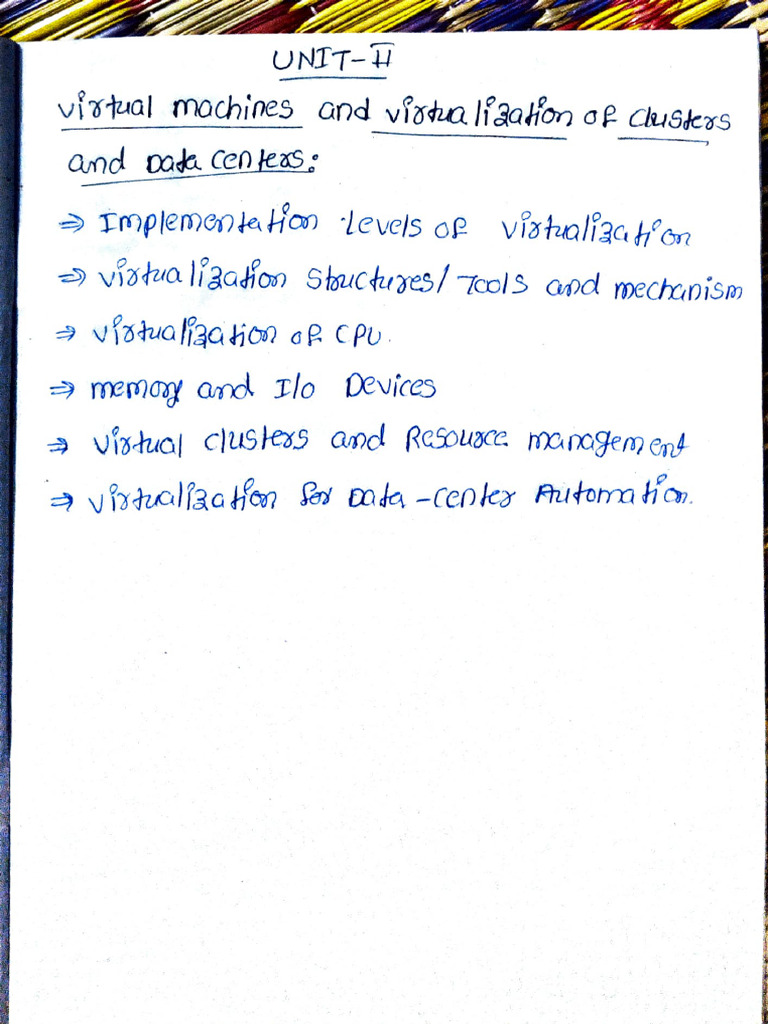 UNIT-II
Virtual machines and virtualization of clusters
and Data centers:
⇒ Implementation levels of virtualization
⇒ virtualization structures/Tools and mechanism
⇒ virtualization of CPU.
⇒ memory and I/O Devices
⇒ virtual clusters and Resource management
⇒ virtualization for Data-center Automation.